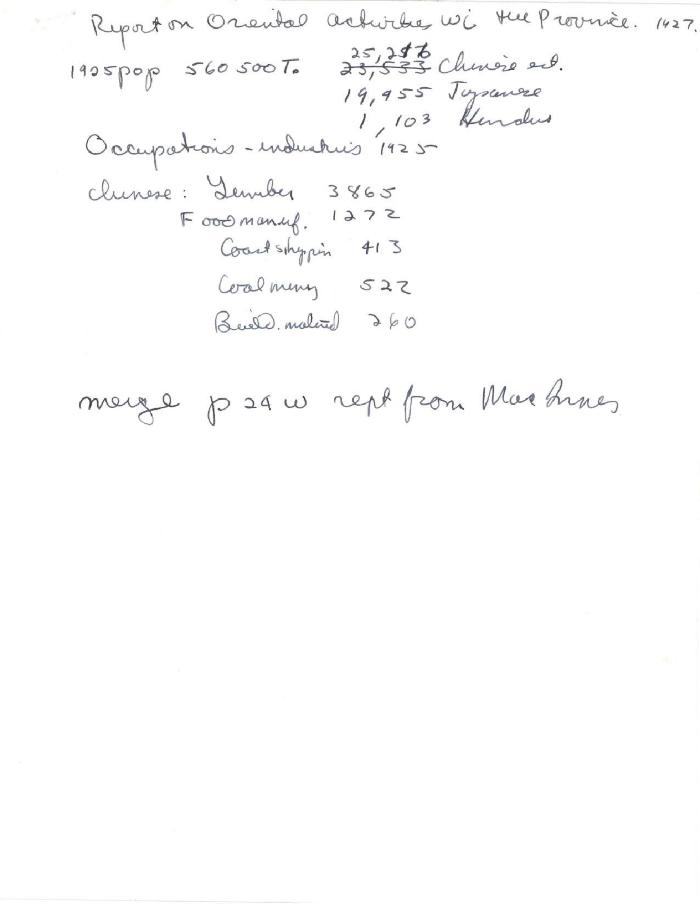 Report on Oriental activities wi the Province. 1927.
25,216
1925 pop 560 500 T. 23,533 Chinese est.
19,955 Japanese
1,103 Hindus
Occupations - industries 1925
Chinese: Lumber 3865
Food manuf. 1272
Coast shippin 413
Coal mining 522
Build. material 260
merge p 24 w rept from MacInnes